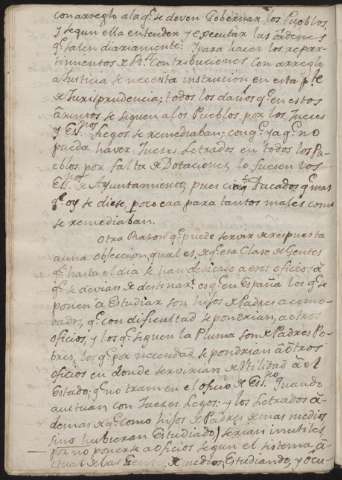 con arreglo a la q.e se deven Gobernar los Pueblos
y segun ella entender y executar las ordenes
q.e salen diariamente: Para hacer los repar-
timientos de R.s Contribuciones con arreglo
a Justicia se necesita instruccion en esta p.te
de Jurisprudencia; todos los daños q.e en estos
asuntos se siguen a los Pueblos por los Jueces
y Es.nos Legos se remediaban; con q.e ya q.e no
pueda haver Jueces Letrados en todos los Pue-
blos por falta de Dotaciones, lo fuesen los
Es.nos de Ayuntamiento, pues cien Ducados q.e mas
q.e oy se diese, poco era para tantos males como
se remediaban.
Otra Razon q.e puede servir de respuesta
a una objeccion, qual es, de q.e esta Clase de Gentes
q.e hasta el dia se han dedicado a esos oficios, a
q.e se devian de destinar es q.e en España los q.e se
ponen a Estudiar son hijos de Padres acomo-
dados, q.e con dificultad se pondrian, a otros
oficios, y los q.e siguen la Pluma son de Padres Po-
bres, los q.e por necesidad se pondrian a otros
oficios en donde servirian de Utilidad a el
Estado, q.e no traen en el oficio de Es.no quando
actuan con Jueces Legos: y los Letrados a-
demas de q.e como hijos de Padres de mas medios
(si no hubieran Estudiado) serian inutiles
por no ponerse a oficios segun el sistema a-
ctual de las Gentes de medios, Estudiando, y ocu-